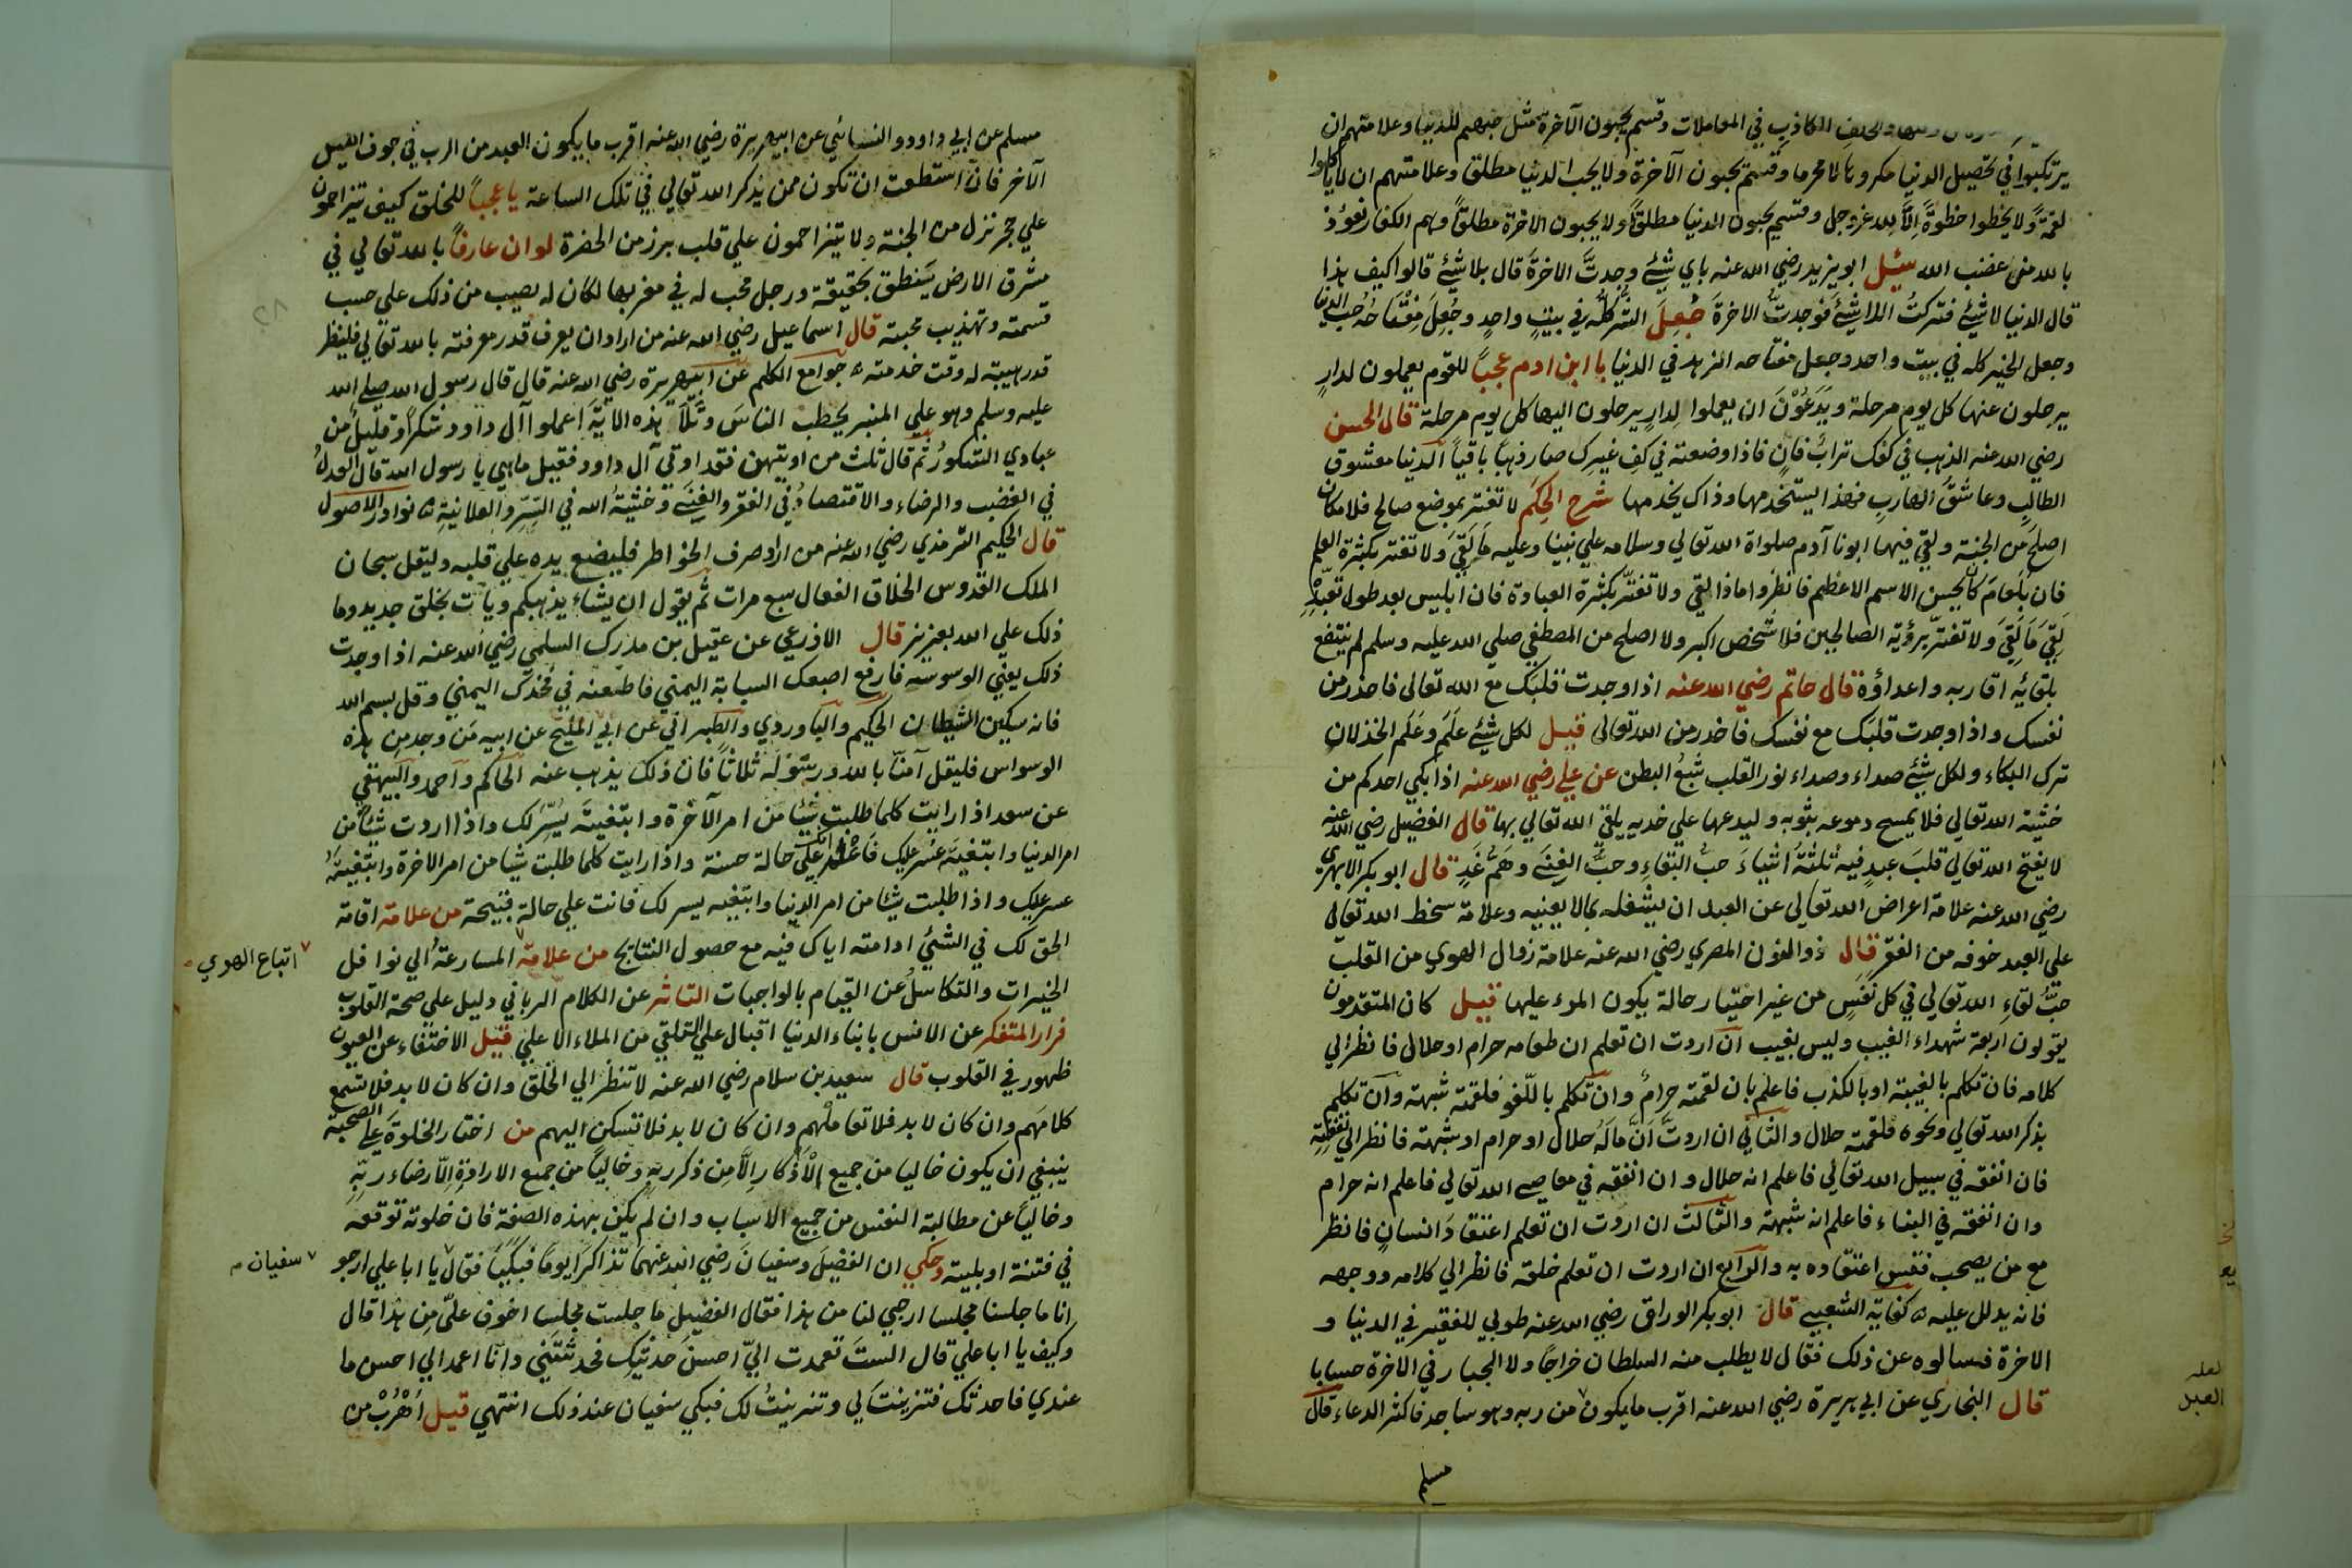 والحلف الكاذب في المعاملات وقسم يحبون الآخرة مثل حبهم للدنيا وعلامتهم ان
يرتكبوا في تحصيل الدنيا مكروها لا محرما وقسم يحبون الآخرة ولا يحب الدنيا مطلقا وعلامتهم ان لا ياكلوا
لقمةً ولا يخطوا خطوةً اِلَّا لله عزوجل وقسم يحبون الدنيا مطلقاً ولا يحبون الاخرة مطلقاً وهم الكفار نعوذ
بالله من غضب الله سئل ابو يزيد رضي الله عنه باي شيئ وجدتَّ الاخرةَ قال بلا شيئ قالوا كيف هذا
قال الدنيا لا شيئ فتركتُ اللا شيئَ فوجدتُّ الاخرةَ جُعِلَ الشرُّ كلُّه في بيتٍ واحدٍ وجُعِلَ مِفْتَاحُهُ حُبَّ الدنيا
وجعل الخير كله في بيت واحد وجعل مفتاحه الزهد في الدنيا يا ابن ادم عجباً للقوم يعملون لدارٍ
يرحلون عنها كل يوم مرحلة ويَدَعُوْنَ ان يعملوا لِدارٍ يرحلون اليها كل يوم مرحلة قال الحسن
رضي الله عنه الذهب في كفك ترابٌ فانٍ فاذا وضعته في كفِ غيرِك صار ذهباً باقياً الدنيا معشوق
الطالب وعاشقُ الهاربِ فهذا يستخدمها وذاك يخدمها شرح الحِكَم لا تغتر بموضع صالح فلا مكان
اصلح مَن الجنة ولقي فيها ابونا آدم صلواة الله تعالي وسلامه علي نبينا وعليه مَا لَقِيَ ولا تغتر بكثرة العلم
فان بَلْعَامَ كان يحسن الاسم الاعظم فانظروا ماذا لقي ولا تغترَّ بكثرة العبادة فان ابليس بعد طول تعبُّدِهِ
لَقِيَ مَا لَقِيَ ولا تغترّ برؤية الصالحين فلا شخص اكبر ولا اصلح من المصطفي صلي الله عليه وسلم لم ينتفع
بلقائه اقاربه واعداؤة قال حاتم رضي الله عنه اذا وجدت قلبَك مع الله تعالى فاحذر من
نفسك واذا وجدت قلبَك مع نفسك فاحذر من الله تعالى قيل لكل شيئ عَلَمٌ وعَلَم الخذلان
ترك البكاء ولكل شيئ صداء وصداء نور القلب شبعُ البطن عن علي رضي الله عنه اذا بكي احدكم من
خشية الله تعالي فلا يمسح دموعه بثوبه وليدعها علي خديه يلقي الله تعالي بها قال الفضيل رضي الله عنه
لا يفتح الله تعالي قلبَ عبدٍ فيه ثلثةُ اشياءَ حبُّ البقاءِ وحبُّ الغِنَى وهَمُّ غَدٍ قال ابو بكر الابهري
رضي الله عنه علامة اعراض الله تعالي عن العبد ان يشغله بما لا يعنيه وعلامة سخط الله تعالى
علي العبد خوفه من الفقر قال ذوالنون المصري رضي الله عنه علامة زوال الهوي من القلب
حبُّ لقاءِ الله تعالي في كل نَفَسٍ من غير اختيار حالة يكون المرء عليها قيل كان المتقدمون
يقولون اربعة شهداء الغيب وليس بغيب ان اردت ان تعلم ان طعامه حرام او حلال فانظر الي
كلامه فان تكلم بالغيبة او بالكذب فاعلم بان لقمته حرامٌ وان تكلم باللّغو فلقمته شبهة وان تكلم
بذكر الله تعالي ونحوه فلقمته حلال والثاني ان اردتَّ اَنَّ مالَهُ حلال او حرام او شبهة فانظر الي نفقته
فان انفقه في سبيل الله تعالي فاعلم انه حلال وان انفقه في معاصي الله تعالي فاعلم انه حرام
وان انفقه في البناء فاعلم انه شبهة والثالث ان اردت ان تعلم اعتقادَ انسانٍ فانظر
مع من يصحب فقس اعتقاده به والرابع ان اردت ان تعلم خلقه فانظر الي كلامه ووجهه
فانه يدلل عليه ه كفاية الشعبي قال ابو بكر الوراق رضي الله عنه طوبي للفقير في الدنيا و
الاخرة فسالوه عن ذلك فقال لا يطلب منه السلطان خراجًا ولا الجبار في الاخرة حسابا
قال البخاري عن ابي هريرة رضي الله عنه اقرب ما يكون من ربه وهو ساجد فاكثر الدعاء قال
لعله
العبد
مسلم
مسلم عن ابي داود والنسائي عن ابيهريرة رضي الله عنه اقرب ما يكون العبد من الرب في جوف الليل
الآخر فان استطعت ان تكون ممن يذكر الله تعالي في تلك الساعة يا عجباً للخلق كيف يتزاحمون
علي حجر نزل من الجنة ولا يتزاحمون علي قلب برز من الحضرة لو ان عارفاً بالله تعالي في
مشرق الارض يَنطق بحقيقة ورجل محب له في مغربها لكان له نصيب من ذلك علي حسب
قسمته وتهذيب محبته قال اسماعيل رضي الله عنه من اراد ان يعرف قدر معرفته بالله تعالي فلينظر
قدر هيبته له وقت خدمته ه جوامع الكلم عن ابيهريرة رضي الله عنه قال قال رسول الله صلي الله
عليه وسلم وهو علي المنبر يخطب الناسَ وتَلَا هذه الايَةَ اعملوا آل داود شكراً وقليل من
عبادي الشكورُ ثم قال ثلث من اوتيهن فقد اوتي آل داود فقيل ما هي يا رسول الله قال العدلُ
في الغضب والرضاء والاقتصادُ في الفقر والغِنَى وخشيةُ الله في السِّرِّ والعلانيةِ ه نوادر الاصول
قال الحكيم الترمذي رضي الله عنه من اراد صرف الخواطر فليضع يده علي قلبه وليقل سبحان
الملك القدوس الخلاق الفعال سبع مرات ثم يقول ان يشاء يذهبكم ويأت بخلق جديد وما
ذلك علي الله بعزيز قال الاذرعي عن عقيل بن مدرك السلمي رضي الله عنه اذا وجدت
ذلك يعني الوسوسه فارفع اصبعك السبابة اليمني فاطعنه في فخذك اليمني وقل بسم الله
فانه سكين الشيطان الحكيم والباوردي والطبراني عن ابي المليح عن ابيه مَن وجد من هذه
الوسواس فليقل آمنّا بالله ورسوله ثلاثاً فان ذلك يذهب عنه الحاكم واحمد والبيهقي
عن سعد اذا رايت كلما طلبت شيئا من امر الآخرة وابتغيتَه يُسِّرَ لك واذا اردت شيئا من
امر الدنيا وابتغيتَه عسر عليك فَاعْلَم انك علي حالة حسنة واذا رايت كلما طلبت شيئا من امر الاخرة وابتغيتَه
عسر عليك واذا طلبت شيئا من امر الدنيا وابتغيه يسر لك فانت علي حالة قبيحة من علامة اقامة
الحق لك في الشئ ادامته اياك فيه مع حصول النتائج من علامة المسارعةُ الي نوافل
اتباع الهوي
الخيرات والتكاسلُ عن القيام بالواجبات التاثر عن الكلام الرباني دليل علي صحة القلوب
فرار المتفكر عن الانس بابناء الدنيا اقبال علي التلقي من الملاء الاعلي قيل الاختفاء عن العيون
ظهور في القلوب قال سعيد بن سلام رضي الله عنه لا تنظر الي الخلق وان كان لا بد فلا تسمع
كلامَهم وان كان لا بد فلا تعاملْهم وان كان لا بد فلا تسكن اليهم من اختار الخلوةَ علي الصحبة
ينبغي ان يكون خاليا من جميع الْاَذْكارِ اِلَّا مِن ذكر ربهٖ وخالياً من جميع الارادةِ اِلّا رضاء ربّهِ
وخالياً عن مطالبة النفس من جميع الاسباب وان لم يكن بهذه الصفة فان خلوته توقعه
في فتنة او بلية وحكي ان الفضيلَ وسفيانَ رضي الله عنهما تذاكرَا يوماً فبكيَا فقال يا ابا علي ارجو
سفيان
انا ما جلسنا مجلسا ارجي لنا من هذا فقال الفضيل ما جلست مجلسا اخوف علَيّ من هذا قال
وكيف يا ابا علي قال الستَ تعمدت اليّ احسنَ حديثِك فحدثتَنِي وانا اعمد الي احسن ما
عندي فاحدثك فتزينتَ لي وتزينتُ لك فبكي سفيان عند ذلك انتهي قيل اُهْرُبْ من